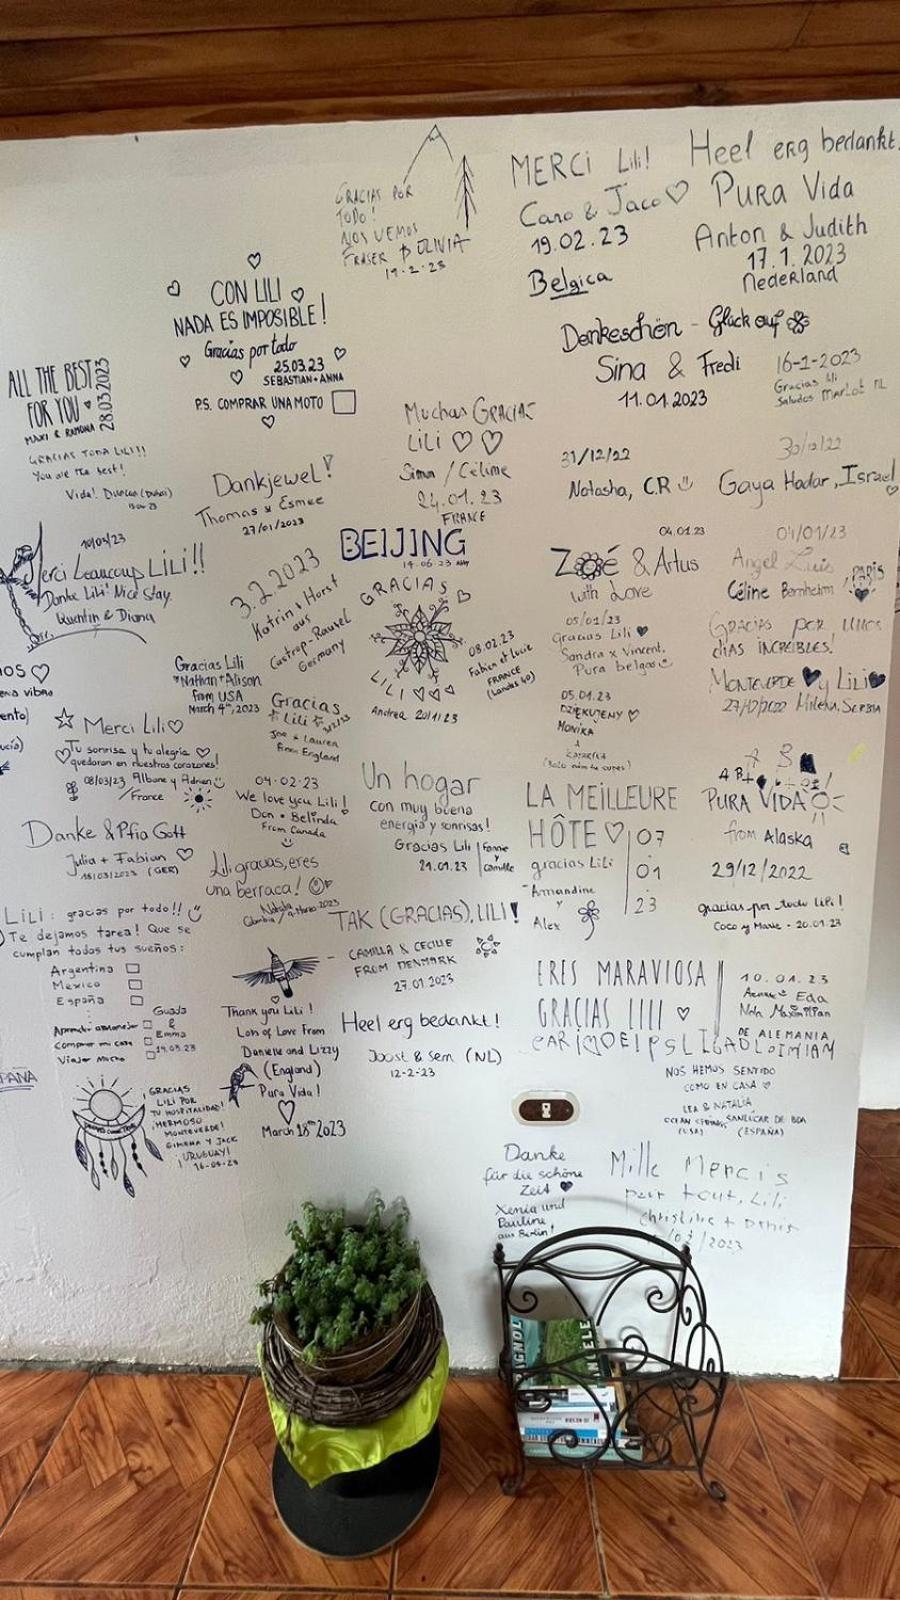 GRACIAS POR
TODO!
NOS VEMOS
FRASER BOLIVIA
19-2-23
MERCI Lili!
Caro & Jaco
19.02.23
Belgica
Heel erg bedankt.
PURA VIDA
Anton & Judith
17.1.2023
Nederland
CON LILI
NADA ES IMPOSIBLE!
Gracias por todo
25.03.23
SEBASTIAN + ANNA
P.S. COMPRAR UNA MOTO
Dankeschön - Glück auf
Sina & Fredi
11.01.2023
16-1-2023
Gracias lili
Saludos Marlot NL
ALL THE BEST
FOR YOU
28.03.2023
MAXI & RAMONA
GRACIAS TODA LILI!!
You are the best!
Vida! Duncan (Dubai)
Muchas GRACIAS
LiLi
Simon / Céline
24.01.23
FRANCE
Dankjewel!
Thomas & Esmee
27/01/2023
31/12/22
Natasha, C.R
30/12/22
Gaya Hadar, Israel
BEIJING
14.06.23
10/03/23
Merci beaucoup LILI!!
Danke Lili! Nice Stay.
Quentin & Diana
3.2.2023
Katrin & Horst
aus
Castrop-Rauxel
Germany
GRACIAS
LILI
Andrea 20/1/23
08.02.23
Fabien et Lucie
FRANCE
(Landes 40)
04.01.23
Zoé & Artus
with Love
04/01/23
Angel Luis
Céline Bernheim
PARIS
05/01/23
Gracias Lili
Sandra x Vincent.
Pura belgas
GRACIAS POR UNOS
dIAS INCREIBLES!
05.01.23
DZIĘKUJEMY
MONIKA
MONTEVERDE y Lili
27/12/2022 Milena, SERBIA
Gracias Lili
Nathan + Alison
from USA
March 4th, 2023
Gracias
Lili
Joe & Lauren
from England
Merci Lili
Tu sonrisa y tu alegria
quedaron en nuestros corazones!
08/03/23 Albane y Adrien
/France
04.02.23
We love you Lili!
Don + Belinda
From Canada
Un hogar
con muy buena
energia y sonrisas!
Gracias Lili
29.01.23
Fanne
y
Camille
LA MEILLEURE
HÔTE
07
01
23
gracias Lili
Amandine
y
Alex
PURA VIDA
from Alaska
29/12/2022
gracias por todo LiLi!
Coco y Marie - 20.01.23
Danke & Pfia Gott
Julia + Fabian
15/03/2023 (GER)
Lili gracias, eres
una berraca!
LiLi: gracias por todo!!
Te dejamos tarea! Que se
cumplan todos tus sueños:
Argentina
Mexico
España
Aprender a manejar
Comprar mi casa
Viajar Mucho
Guada
&
Emma
19.03.23
TAK (GRACIAS), LILI!
CAMILLA & CECILIE
FROM DENMARK
27.01.2023
ERES MARAVIOSA
GRACIAS LILI
10.01.23
DE ALEMANIA
Thank you Lili!
Lots of Love From
Danielle and Lizzy
(England)
Pura Vida!
March 18th 2023
Heel erg bedankt!
Joost & Sem (NL)
12-2-23
NOS HEMOS SENTIDO
COMO EN CASA
LEA & NATALIA
OCEAN SPRINGS
(USA)
SANLÚCAR DE BDA
(ESPAÑA)
GRACIAS
LILI POR
TU HOSPITALIDAD!
¡HERMOSO
MONTEVERDE!
GIMENA Y JACK
¡URUGUAY!
16-03-23
Danke
für die schöne
Zeit
Xenia und
Pauline
aus Berlin!
Mille Mercis
pour tout, Lili
Christine + Denis
/2023